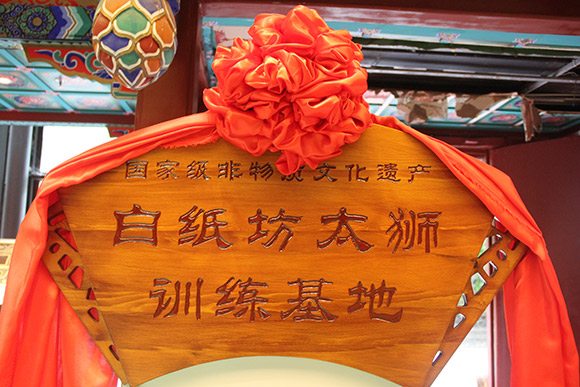 国家级非物质文化遗产
白纸坊太狮
训练基地